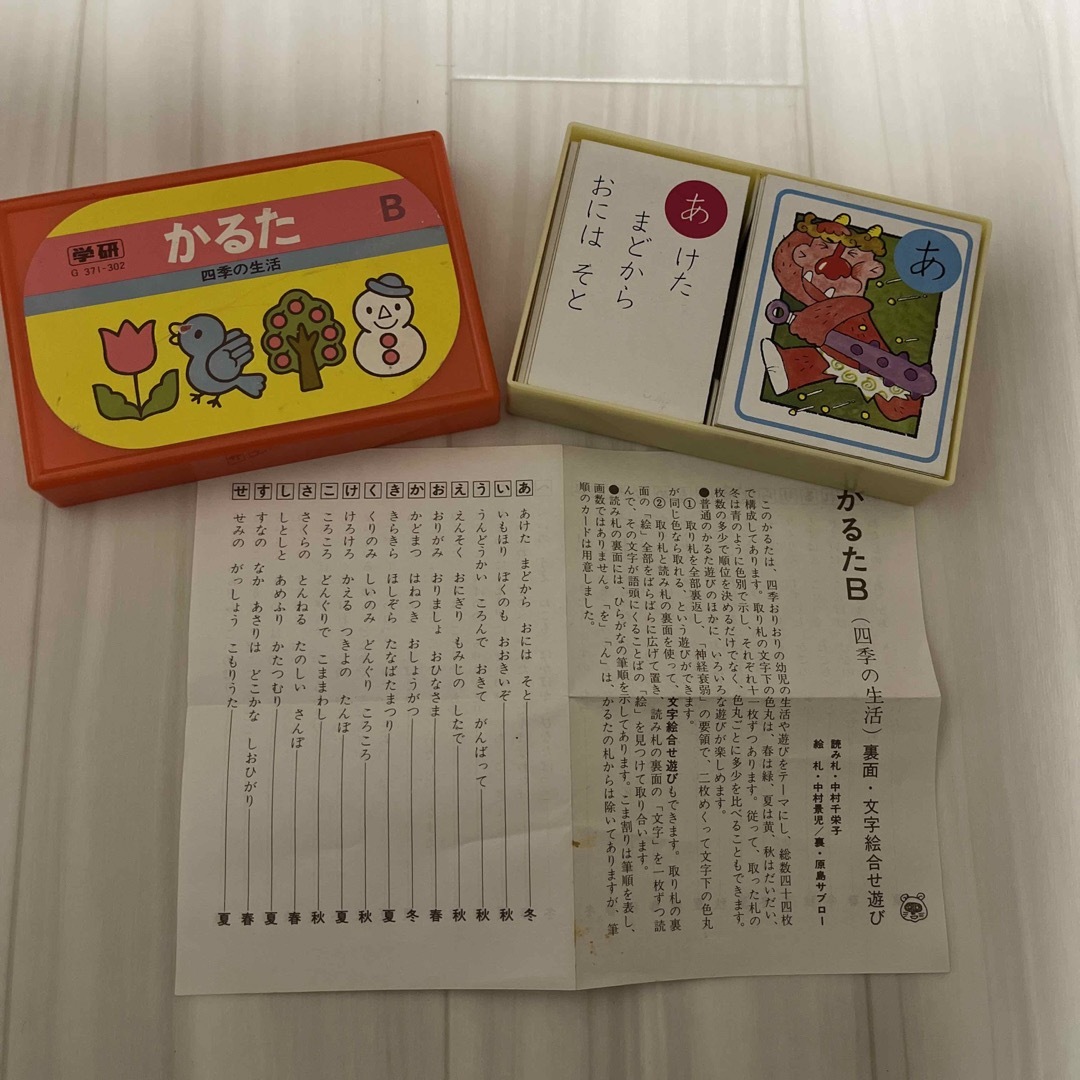 学研
G 371-302
かるた
B
四季の生活
あけた
まどから
おには そと
あ
かるたB（四季の生活）裏面・文字絵合せ遊び
読み札・中村千栄子
絵 札・中村景児／裏・原島サブロー
このかるたは、四季おりおりの幼児の生活や遊びをテーマにし、総数四十四枚
で構成してあります。取り札の文字下の色丸は、春は緑、夏は黄、秋はだいだい、
冬は青のように色別で示し、それぞれ十一枚ずつあります。従って、取った札の
枚数の多少で順位を決めるだけでなく、色丸ごとに多少を比べることもできます。
●普通のかるた遊びのほかに、いろいろな遊びが楽しめます。
① 取り札を全部裏返し、「神経衰弱」の要領で、二枚めくって文字下の色丸
が同じ色なら取れる、という遊びができます。
② 取り札と読み札の裏面を使って、文字絵合せ遊びもできます。取り札の裏
面の「絵」全部をばらばらに広げて置き、読み札の裏面の「文字」を一枚ずつ読
んで、その文字が語頭にくることばの「絵」を見つけて取り合います。
●読み札の裏面には、ひらがなの筆順を示してあります。こま割りは筆順を表し、
画数ではありません。「を」「ん」は、かるたの札からは除いてありますが、筆
順のカードは用意しました。
あ あけた まどから おには そと 冬
い いもほり ぼくのも おおきいぞ 秋
う うんどうかい ころんで おきて がんばって 秋
え えんそく おにぎり もみじの したで 秋
お おりがみ おりましょ おひなさま 春
か かどまつ はねつき おしょうがつ 冬
き きらきら ほしぞら たなばたまつり 夏
く くりのみ しいのみ どんぐり ころころ 秋
け けろけろ かえる つきよの たんぼ 夏
こ ころころ どんぐりで こままわし 秋
さ さくらの とんねる たのしい さんぽ 春
し しとしと あめふり かたつむり 夏
す すなの なか あさりは どこかな しおひがり 春
せ せみの がっしょう こもりうた 夏